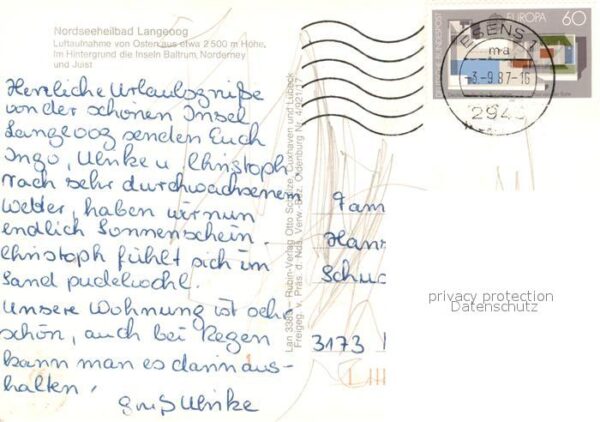 Nordseeheilbad Langeoog
Luftaufnahme von Osten aus etwa 2500 m Höhe.
Im Hintergrund die Inseln Baltrum, Norderney
und Juist
Herzliche Urlaubsgrüße
von der schönen Insel
Langeoog senden Euch
Ingo, Ulrike u. Christoph
Nach sehr durchwachsenem
Wetter, haben wir nun
endlich Sonnenschein.
Christoph fühlt sich im
Sand pudelwohl.
Unsere Wohnung ist sehr
schön, auch bei Regen
kann man es darin aus-
halten.
Gruß Ulrike
Lan 3389 – Rubin-Verlag Otto Schulze, Cuxhaven und Lübeck
Freigeg. v. Präs. d. Nds. Verw.-Bez. Oldenburg Nr. 4/021/17
ESENS 1
ma
-3.-9.87-16
DEUTSCHE BUNDESPOST
EUROPA 60
Fam
Hans
Schu
3173
privacy protection
Datenschutz